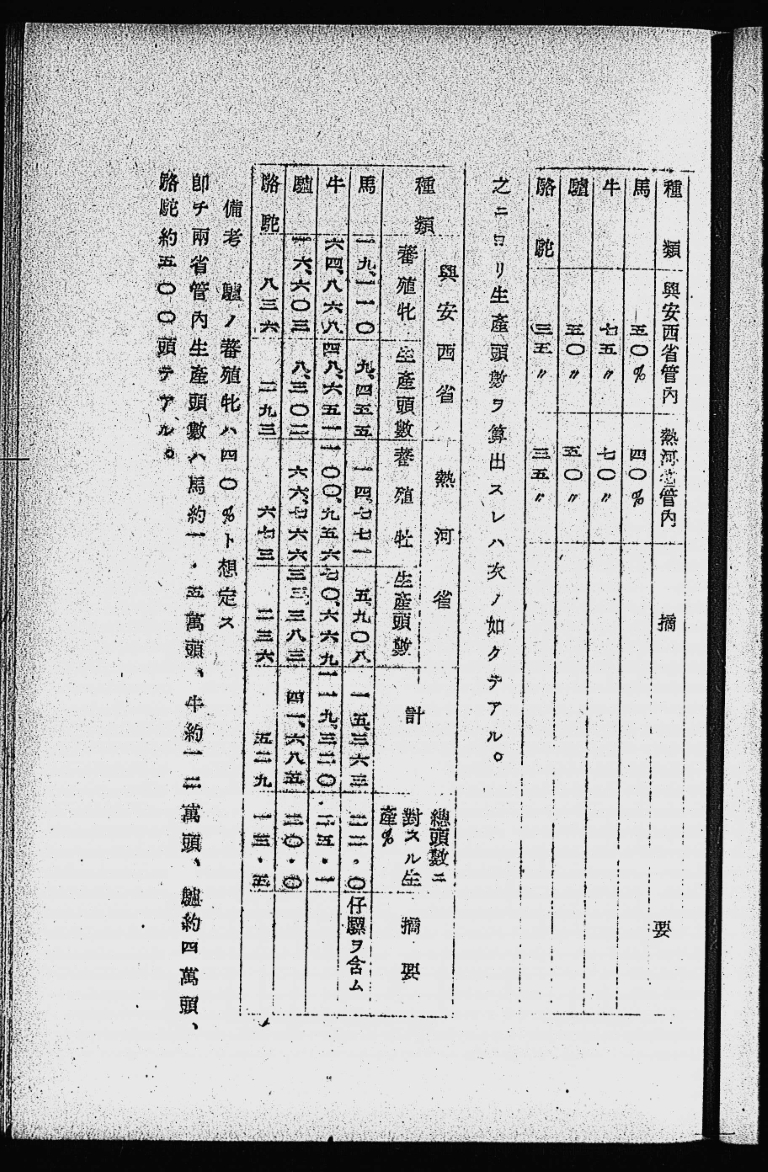 種類 興安西省管内 熱河省管内 摘要
馬 五〇% 四〇%
牛 七五〃 七〇〃
驢 五〇〃 五〇〃
駱駝 三五〃 三五〃
之ニヨリ生産頭數ヲ算出スレハ次ノ如クテアル。
種類 興安西省 熱河省 計 總頭數ニ對スル生産% 摘要
蕃殖牝 生産頭數 蕃殖牡 生産頭數
馬 一九、一一〇 九、四五五 一四、七七一 五、九〇八 一五、三六三 二二・〇 仔騾ヲ含ム
牛 六四、八六八 四八、六五一 一〇〇、九五六 七〇、六六九 一一九、三二〇 二五・一
驢 一六、六〇三 八、三〇二 六六、七六六 三三、三八三 四一、六八五 二〇・〇
駱駝 八三六 二九三 六七三 二三六 五二九 一三・五
備考 驢ノ蕃殖牝ハ四〇%ト想定ス
卽チ兩省管内生産頭數ハ馬約一・五萬頭、牛約一二萬頭、驢約四萬頭、
駱駝約五〇〇頭テアル。